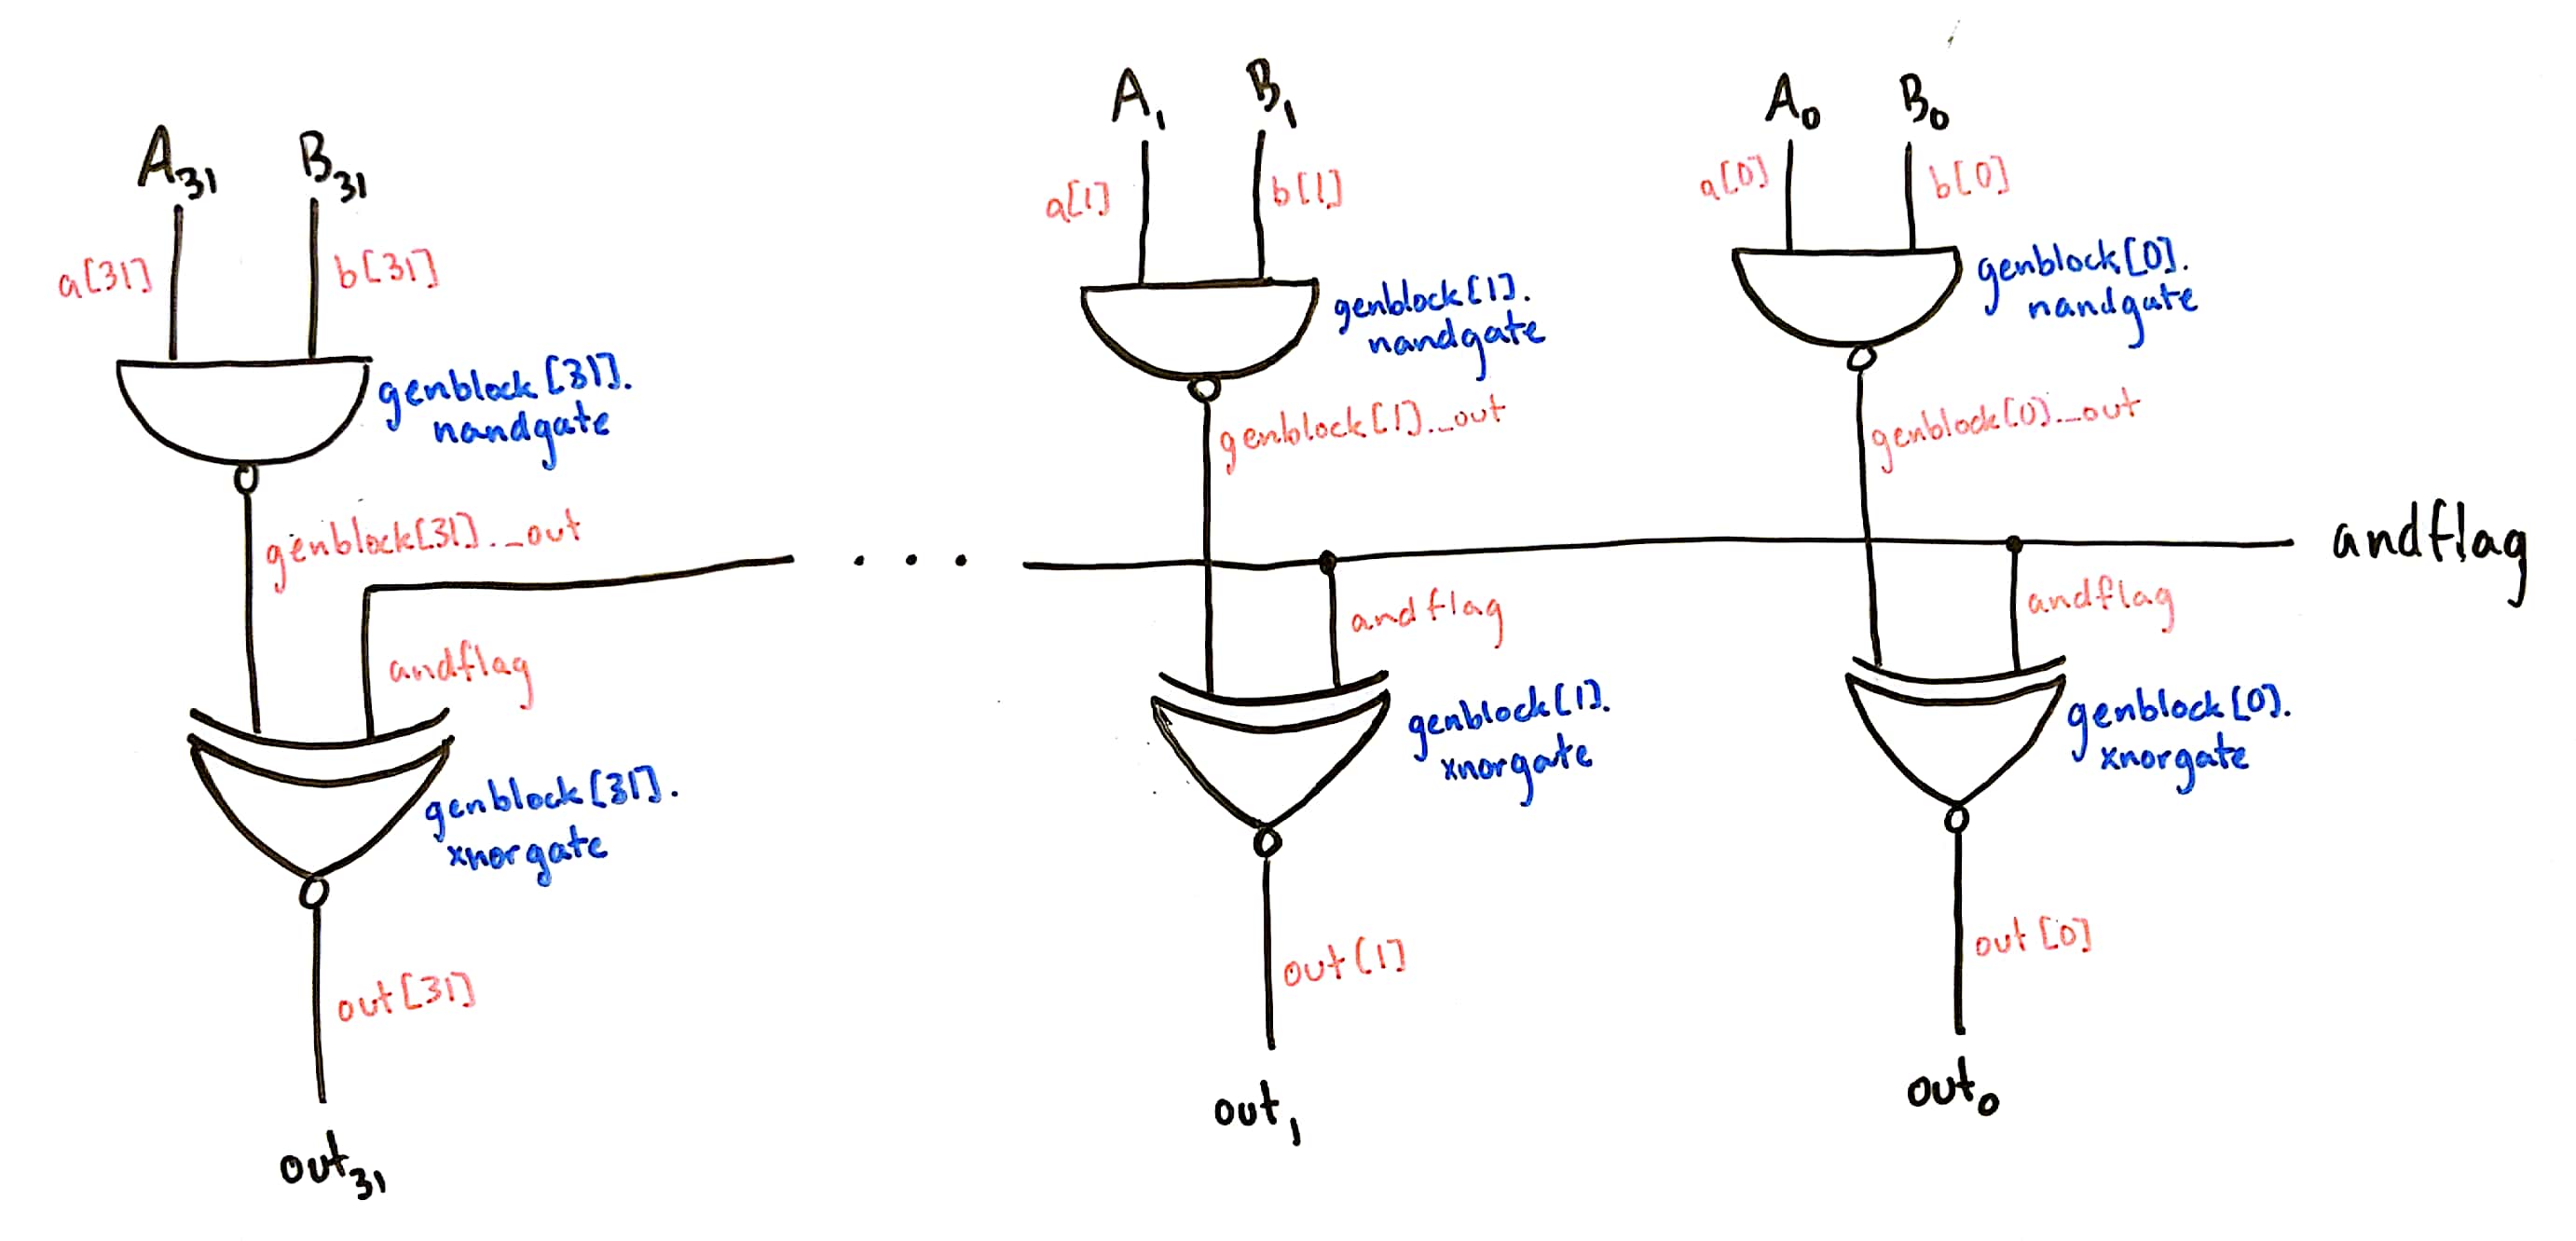 A31 B31
a[31] b[31]
genblock[31].
nandgate
genblock[31]._out
andflag
genblock[31].
xnorgate
out[31]
out31
. . .
A1 B1
a[1] b[1]
genblock[1].
nandgate
genblock[1]._out
andflag
genblock[1].
xnorgate
out[1]
out1
A0 B0
a[0] b[0]
genblock[0].
nandgate
genblock[0]._out
andflag
andflag
genblock[0].
xnorgate
out[0]
out0